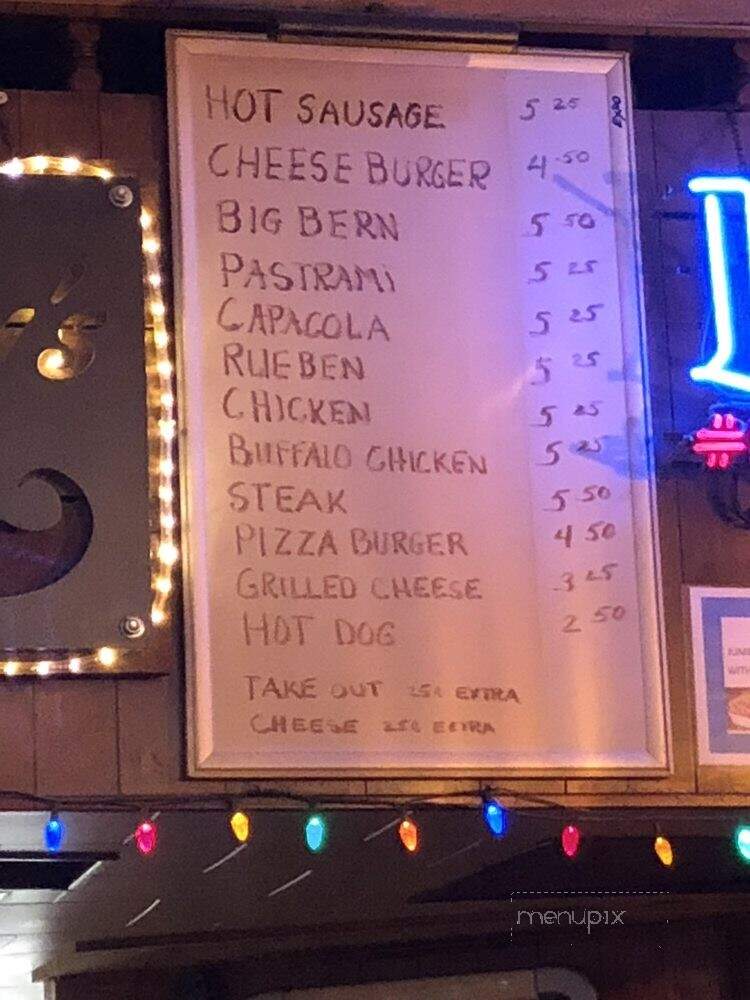 HOT SAUSAGE 5 25
CHEESE BURGER 4.50
BIG BERN 5 50
PASTRAMI 5 25
CAPACOLA 5 25
RUEBEN 5 25
CHICKEN 5 25
BUFFALO CHICKEN 5 25
STEAK 5 50
PIZZA BURGER 4 50
GRILLED CHEESE 3 25
HOT DOG 2 50
TAKE OUT 25¢ EXTRA
CHEESE 25¢ EXTRA
menupix